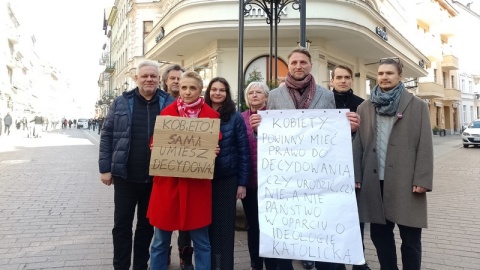 KOBIETO!
SAMA
UMIESZ
DECYDOWAĆ
KOBIETY
POWINNY MIEĆ
PRAWO DO
DECYDOWANIA
CZY URODZIĆ CZY
NIE, A NIE
PAŃSTWO
W OPARCIU O
IDEOLOGIĘ
KATOLICKĄ